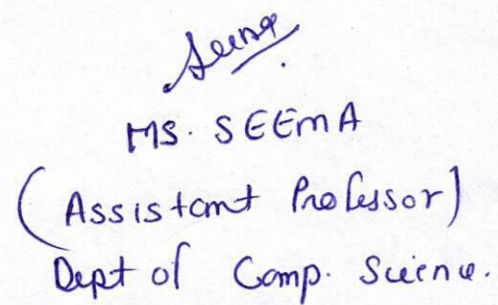 Seema
MS. SEEMA
(Assistant Professor)
Dept of Comp. Science.